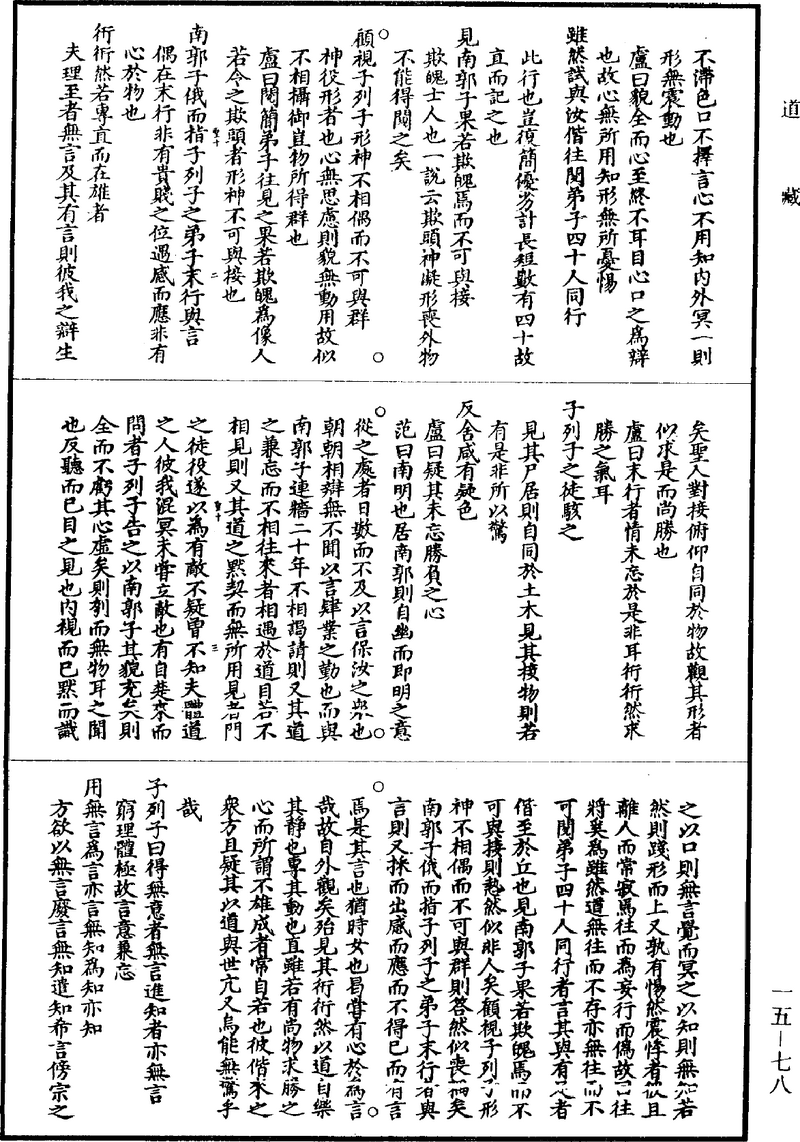 道藏
不滯色口不擇言心不用知內外冥一則
形無震動也
盧曰貌全而心至終不耳目心口之為辯
也故心無所用知形無所憂惕
雖然試與汝偕往閱弟子四十人同行
此行也豈復簡優劣計長短數有四十故
直而記之也
見南郭子果若欺魄焉而不可與接
欺魄士人也一說云欺頭神凝形喪外物
不能得闚之矣
顧視子列子形神不相偶而不可與群
神役形者也心無思慮則貌無動用故似
不相攝御豈物所得群也
盧曰閱簡弟子往見之果若欺魄為像人
若今之欺頭者形神不可與接也
南郭子俄而指子列子之弟子末行與言
偶在末行非有貴賤之位遇感而應非有
心於物也
衎衎然若專直而在雄者
夫理至者無言及其有言則彼我之辯生
矣聖人對接俯仰自同於物故觀其形者
似求是而尚勝也
盧曰末行者情未忘於是非耳衎衎然求
勝之氣耳
子列子之徒駭之
見其尸居則自同於土木見其接物則若
有是非所以驚
反舍咸有疑色
盧曰疑其未忘勝負之心
范曰南明也居南郭則自幽而即明之意
從之處者日數而不及以言保汝之眾也
朝朝相辯無不聞以言肆業之勤也而與
南郭子連牆二十年不相謁請則又其道
之兼忘而不相往來者相遇於道目若不
相見則又其道之默契而無所用見者門
之徒役遂以為有敵不疑曾不知夫體道
之人彼我混冥未嘗立敵也有自楚來而
問者子列子告之以南郭子其貌充矣則
全而不虧其心虛矣則刳而無物耳之聞
也反聽而已目之見也內視而已默而識
之以口則無言覺而冥之以知則無知若
然則踐形而上又孰有惕然震悸者哉且
離人而常寂焉往而為妄行而偽故曰往
將奚為雖然道無往而不存亦無往而不
可閱弟子四十人同行者言其與有足者
偕至於丘也見南郭子果若欺魄焉而不
可與接則慹然似非人矣顧視子列子形
神不相偶而不可與群則荅然似喪耦矣
南郭子俄而指子列子之弟子末行者與
言則又採而出感而應而不得已而有言
焉是其言也猶時女也曷嘗有心於為言
哉故自外觀矣殆見其衎衎然以道自樂
其靜也專其動也直雖若有尚物求勝之
心而所謂不雄成者常自若也彼偕來之
眾方且疑其以道與世亢又烏能無驚乎
哉
子列子曰得無意者無言進知者亦無言
窮理體極故言意兼忘
用無言為言亦言無知為知亦知
方欲以無言廢言無知遣知希言傍宗之
一五-七八